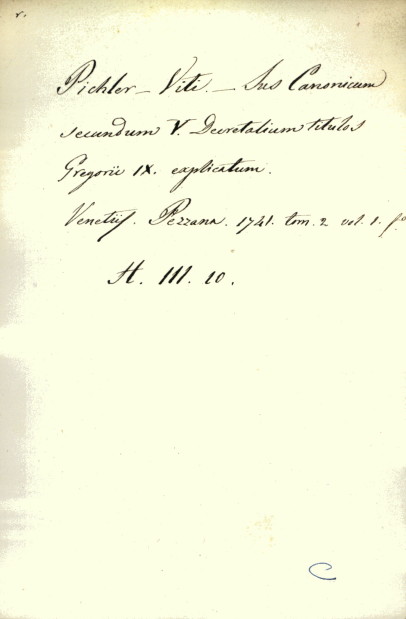 r.
Pichler – Viti. – Jus Canonicum
secundum V. Decretalium titulos
Gregorii IX. explicatum.
Venetijs. Pezzana. 1741. tom. 2 vol. 1. fo
H. III. 10.
C